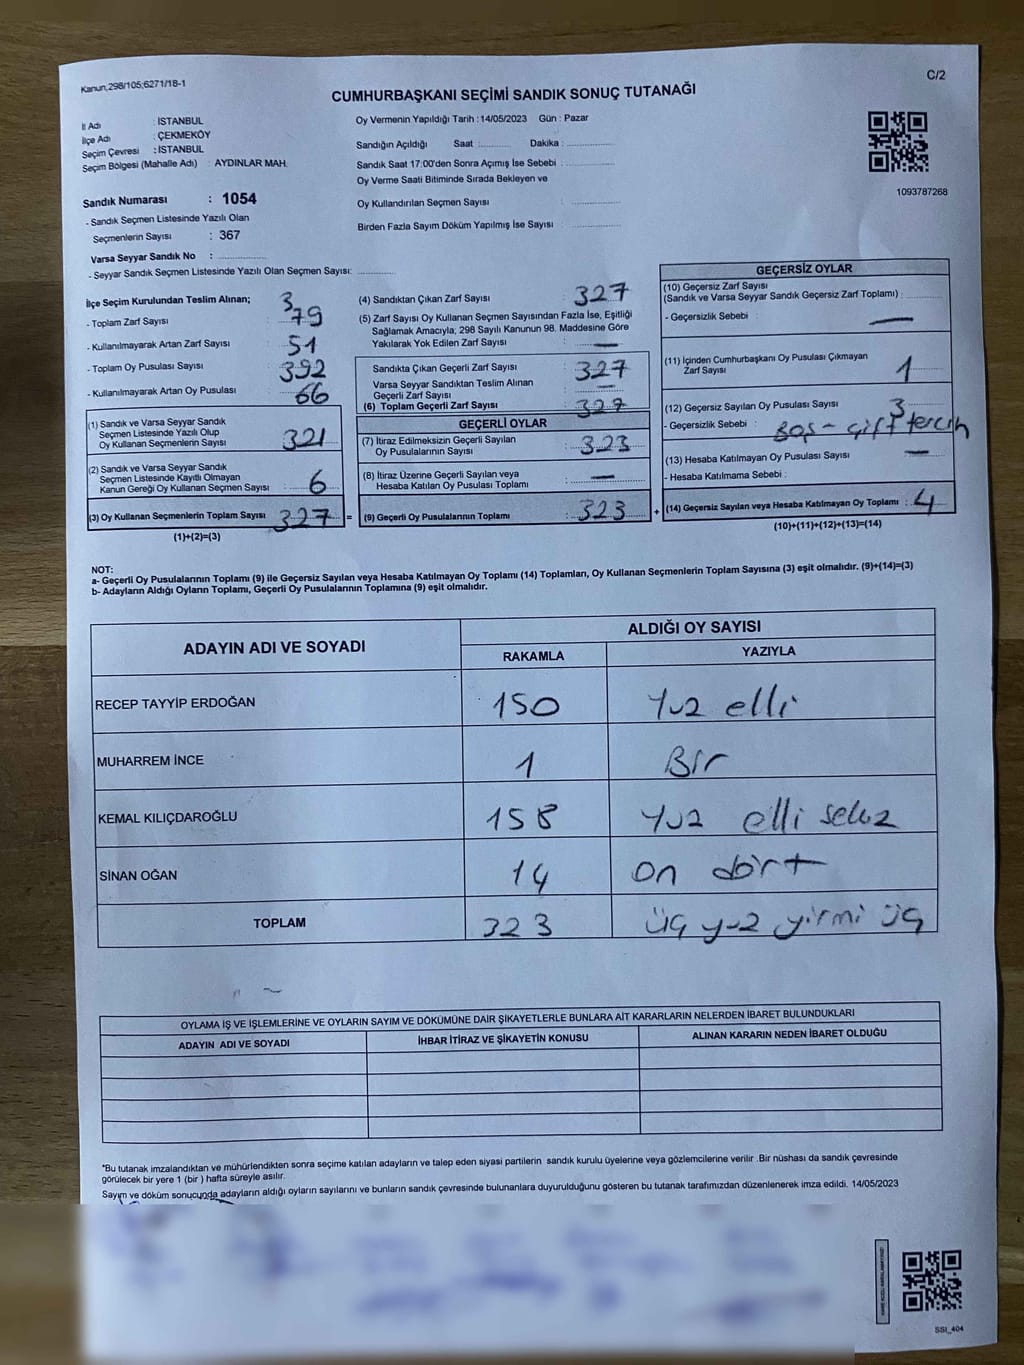 Kanun,298/105;6271/18-1
C/2
CUMHURBAŞKANI SEÇİMİ SANDIK SONUÇ TUTANAĞI
İl Adı : İSTANBUL
İlçe Adı : ÇEKMEKÖY
Seçim Çevresi : İSTANBUL
Seçim Bölgesi (Mahalle Adı) : AYDINLAR MAH.
Oy Vermenin Yapıldığı Tarih : 14/05/2023 Gün : Pazar
Sandığın Açıldığı Saat : Dakika :
Sandık Saat 17:00'den Sonra Açımış İse Sebebi :
Oy Verme Saati Bitiminde Sırada Bekleyen ve
Oy Kullandırılan Seçmen Sayısı :
Birden Fazla Sayım Döküm Yapılmış İse Sayısı :
1093787268
Sandık Numarası : 1054
- Sandık Seçmen Listesinde Yazılı Olan
Seçmenlerin Sayısı : 367
Varsa Seyyar Sandık No :
- Seyyar Sandık Seçmen Listesinde Yazılı Olan Seçmen Sayısı:
İlçe Seçim Kurulundan Teslim Alınan;
- Toplam Zarf Sayısı : 379
- Kullanılmayarak Artan Zarf Sayısı : 51
- Toplam Oy Pusulası Sayısı : 392
- Kullanılmayarak Artan Oy Pusulası : 66
(1) Sandık ve Varsa Seyyar Sandık
Seçmen Listesinde Yazılı Olup
Oy Kullanan Seçmenlerin Sayısı : 321
(2) Sandık ve Varsa Seyyar Sandık
Seçmen Listesinde Kayıtlı Olmayan
Kanun Gereği Oy Kullanan Seçmen Sayısı : 6
(3) Oy Kullanan Seçmenlerin Toplam Sayısı : 327 =
(1)+(2)=(3)
(4) Sandıktan Çıkan Zarf Sayısı : 327
(5) Zarf Sayısı Oy Kullanan Seçmen Sayısından Fazla İse, Eşitliği
Sağlamak Amacıyla; 298 Sayılı Kanunun 98. Maddesine Göre
Yakılarak Yok Edilen Zarf Sayısı : —
Sandıkta Çıkan Geçerli Zarf Sayısı : 327
Varsa Seyyar Sandıktan Teslim Alınan
Geçerli Zarf Sayısı : —
(6) Toplam Geçerli Zarf Sayısı : 327
GEÇERLİ OYLAR
(7) İtiraz Edilmeksizin Geçerli Sayılan
Oy Pusulalarının Sayısı : 323
(8) İtiraz Üzerine Geçerli Sayılan veya
Hesaba Katılan Oy Pusulası Toplamı : —
(9) Geçerli Oy Pusulalarının Toplamı : 323 +
GEÇERSİZ OYLAR
(10) Geçersiz Zarf Sayısı
(Sandık ve Varsa Seyyar Sandık Geçersiz Zarf Toplamı) :
- Geçersizlik Sebebi : —
(11) İçinden Cumhurbaşkanı Oy Pusulası Çıkmayan
Zarf Sayısı : 1
(12) Geçersiz Sayılan Oy Pusulası Sayısı : 3
- Geçersizlik Sebebi : BOŞ - çift tercih
(13) Hesaba Katılmayan Oy Pusulası Sayısı : —
- Hesaba Katılmama Sebebi :
(14) Geçersiz Sayılan veya Hesaba Katılmayan Oy Toplamı : 4
(10)+(11)+(12)+(13)=(14)
NOT:
a- Geçerli Oy Pusulalarının Toplamı (9) ile Geçersiz Sayılan veya Hesaba Katılmayan Oy Toplamı (14) Toplamları, Oy Kullanan Seçmenlerin Toplam Sayısına (3) eşit olmalıdır. (9)+(14)=(3)
b- Adayların Aldığı Oyların Toplamı, Geçerli Oy Pusulalarının Toplamına (9) eşit olmalıdır.
ADAYIN ADI VE SOYADI ALDIĞI OY SAYISI
RAKAMLA YAZIYLA
RECEP TAYYİP ERDOĞAN 150 Yuz elli
MUHARREM İNCE 1 Bir
KEMAL KILIÇDAROĞLU 158 Yuz elli sekiz
SİNAN OĞAN 14 on dört
TOPLAM 323 üç yuz yirmi üç
OYLAMA İŞ VE İŞLEMLERİNE VE OYLARIN SAYIM VE DÖKÜMÜNE DAİR ŞİKAYETLERLE BUNLARA AİT KARARLARIN NELERDEN İBARET BULUNDUKLARI
ADAYIN ADI VE SOYADI İHBAR İTİRAZ VE ŞİKAYETİN KONUSU ALINAN KARARIN NEDEN İBARET OLDUĞU
*Bu tutanak imzalandıktan ve mühürlendikten sonra seçime katılan adayların ve talep eden siyasi partilerin sandık kurulu üyelerine veya gözlemcilerine verilir .Bir nüshası da sandık çevresinde
görülecek bir yere 1 (bir ) hafta süreyle asılır.
Sayım ve döküm sonucunda adayların aldığı oyların sayılarını ve bunların sandık çevresinde bulunanlara duyurulduğunu gösteren bu tutanak tarafımızdan düzenlenerek imza edildi. 14/05/2023
SSI_404